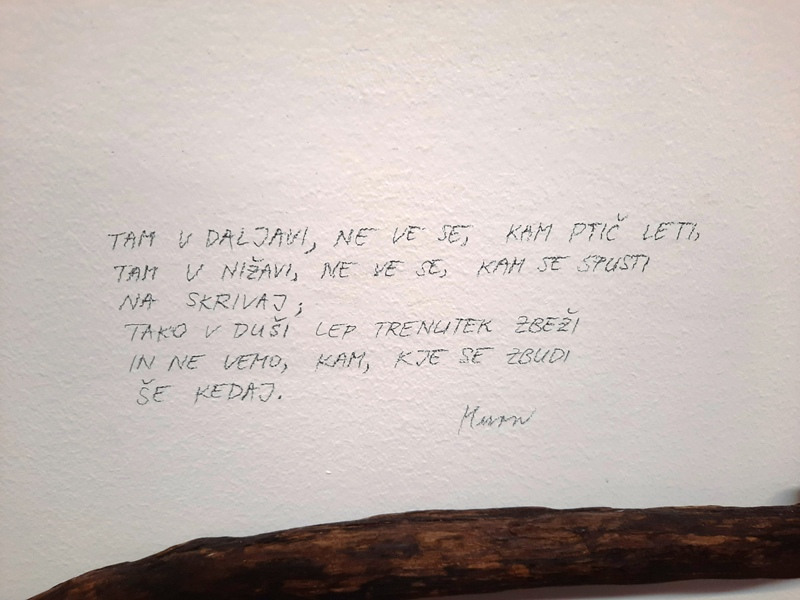 TAM V DALJAVI, NE VE SE, KAM PTIČ LETI,
TAM V NIŽAVI, NE VE SE, KAM SE SPUSTI
NA SKRIVAJ;
TAKO V DUŠI LEP TRENUTEK ZBEŽI
IN NE VEMO, KAM, KJE SE ZBUDI
ŠE KEDAJ.